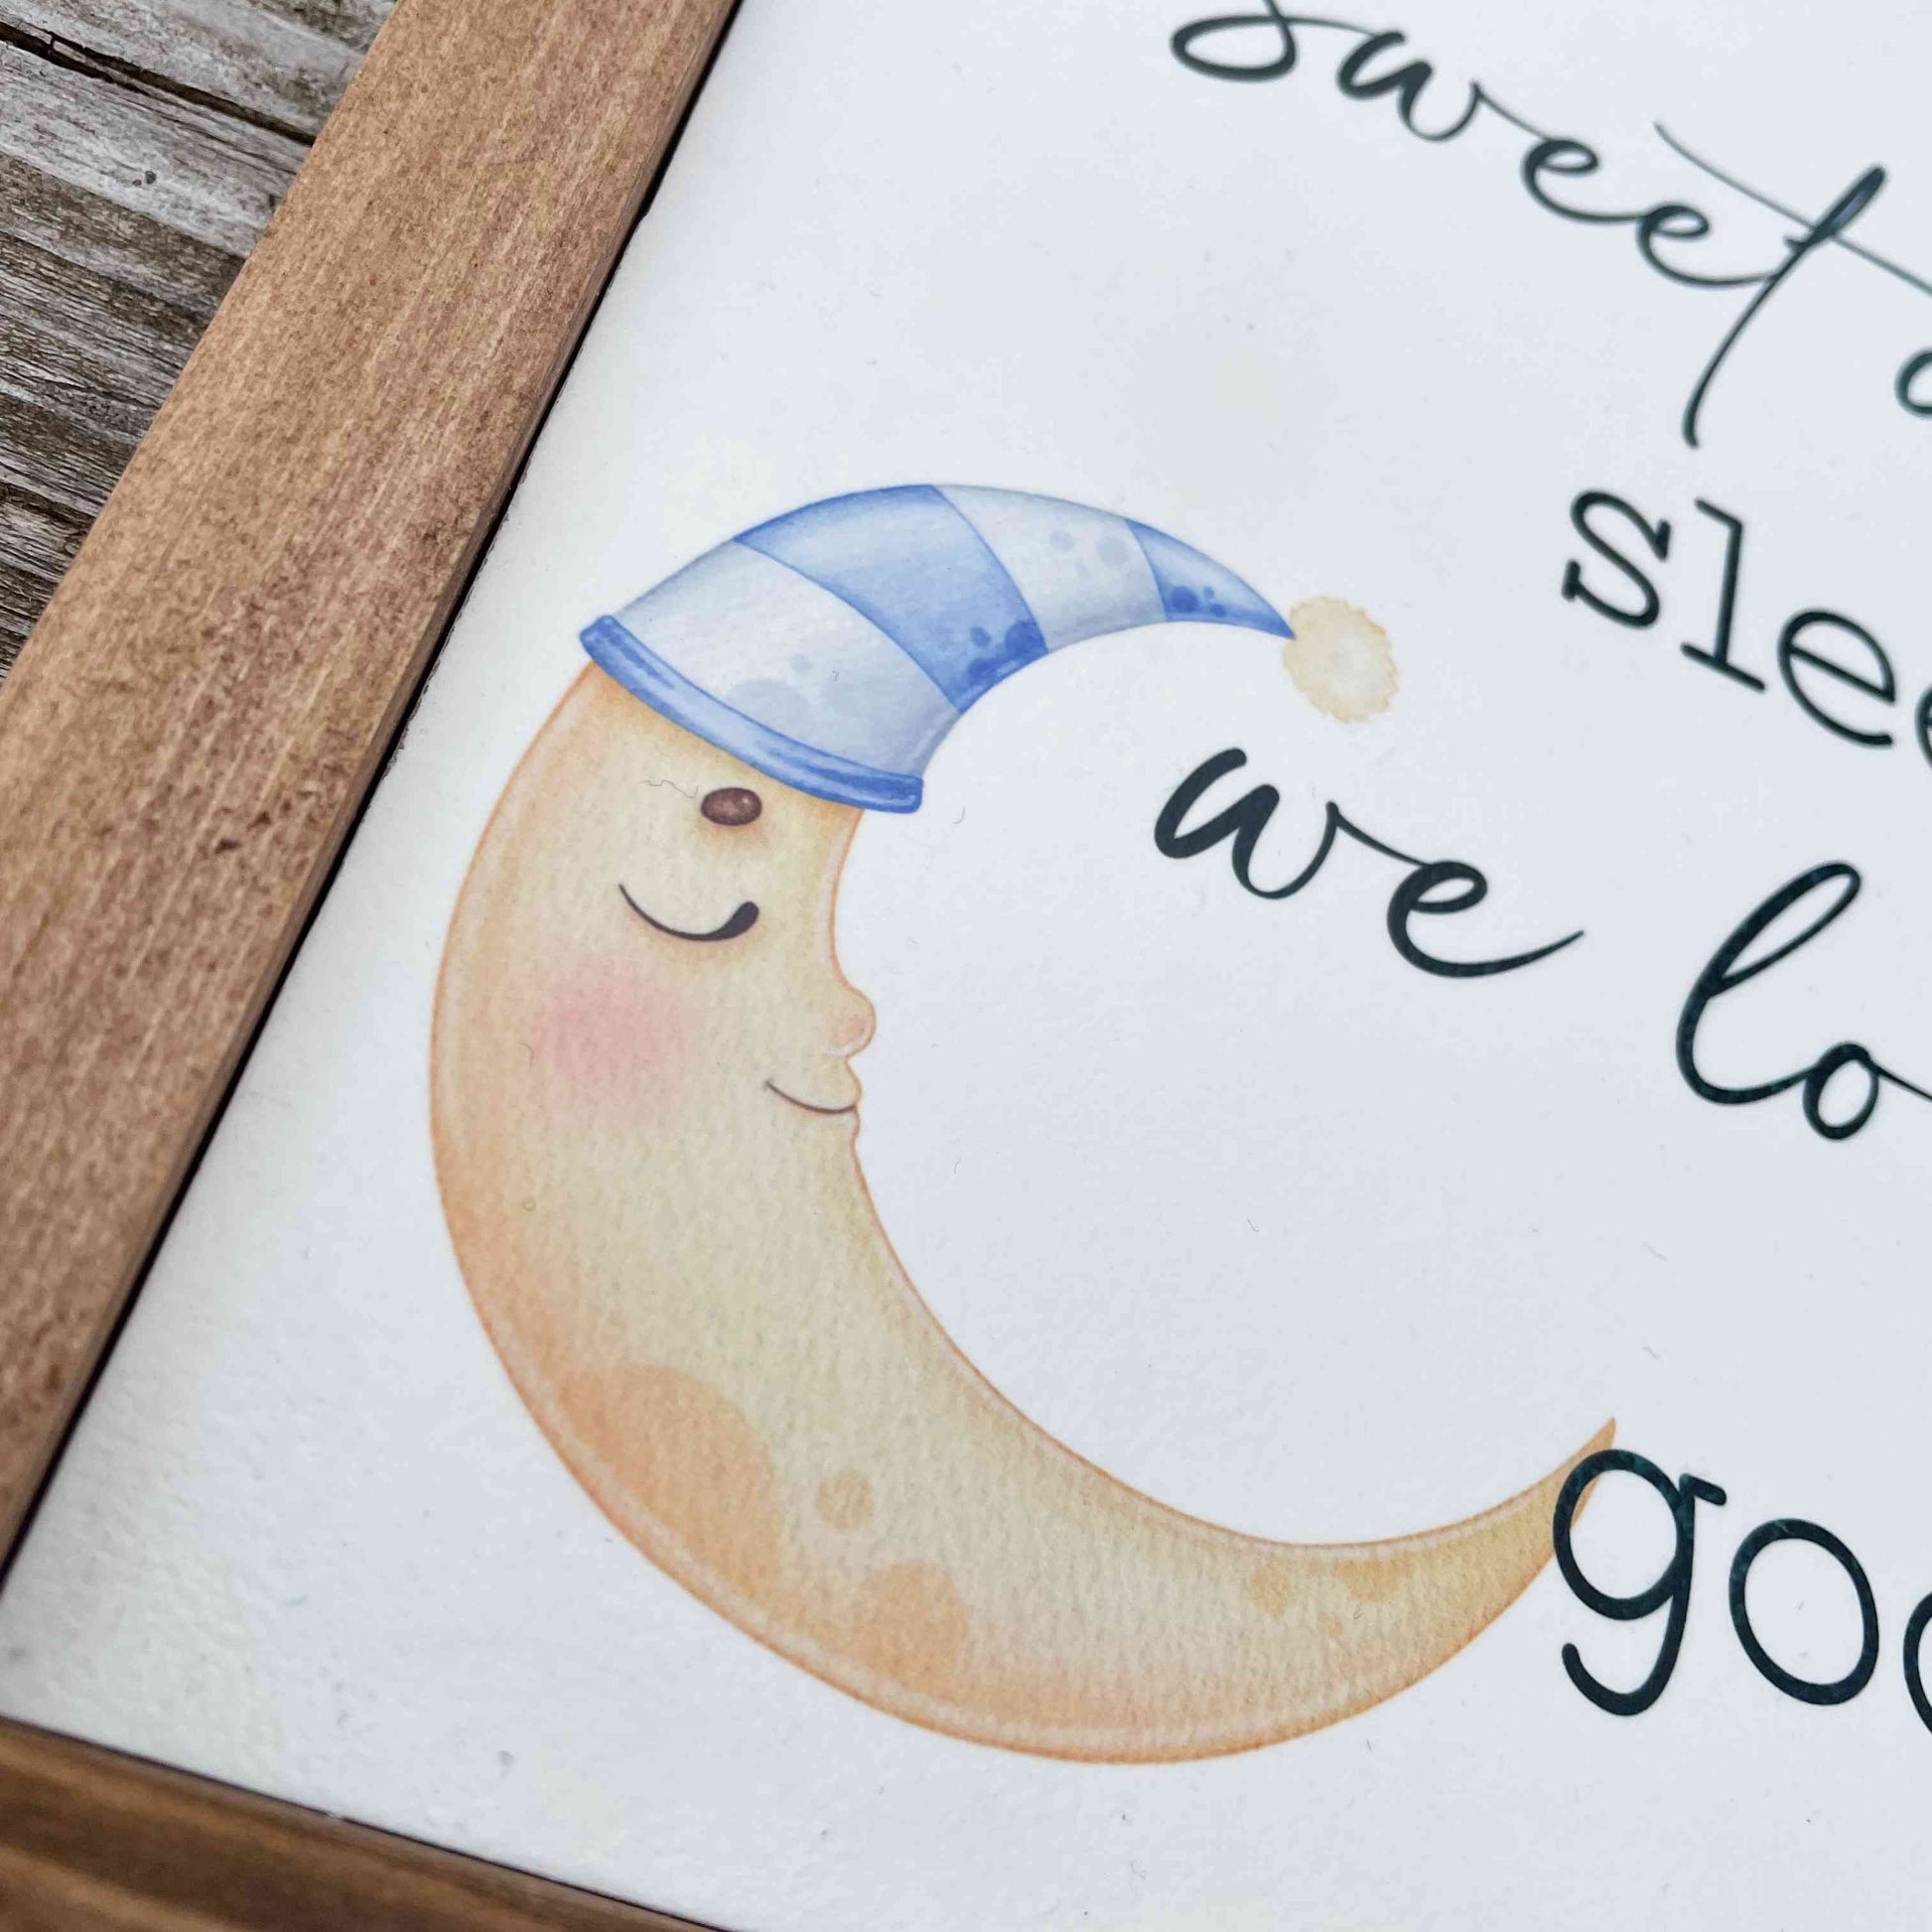 sweet
slee
we lo
goo